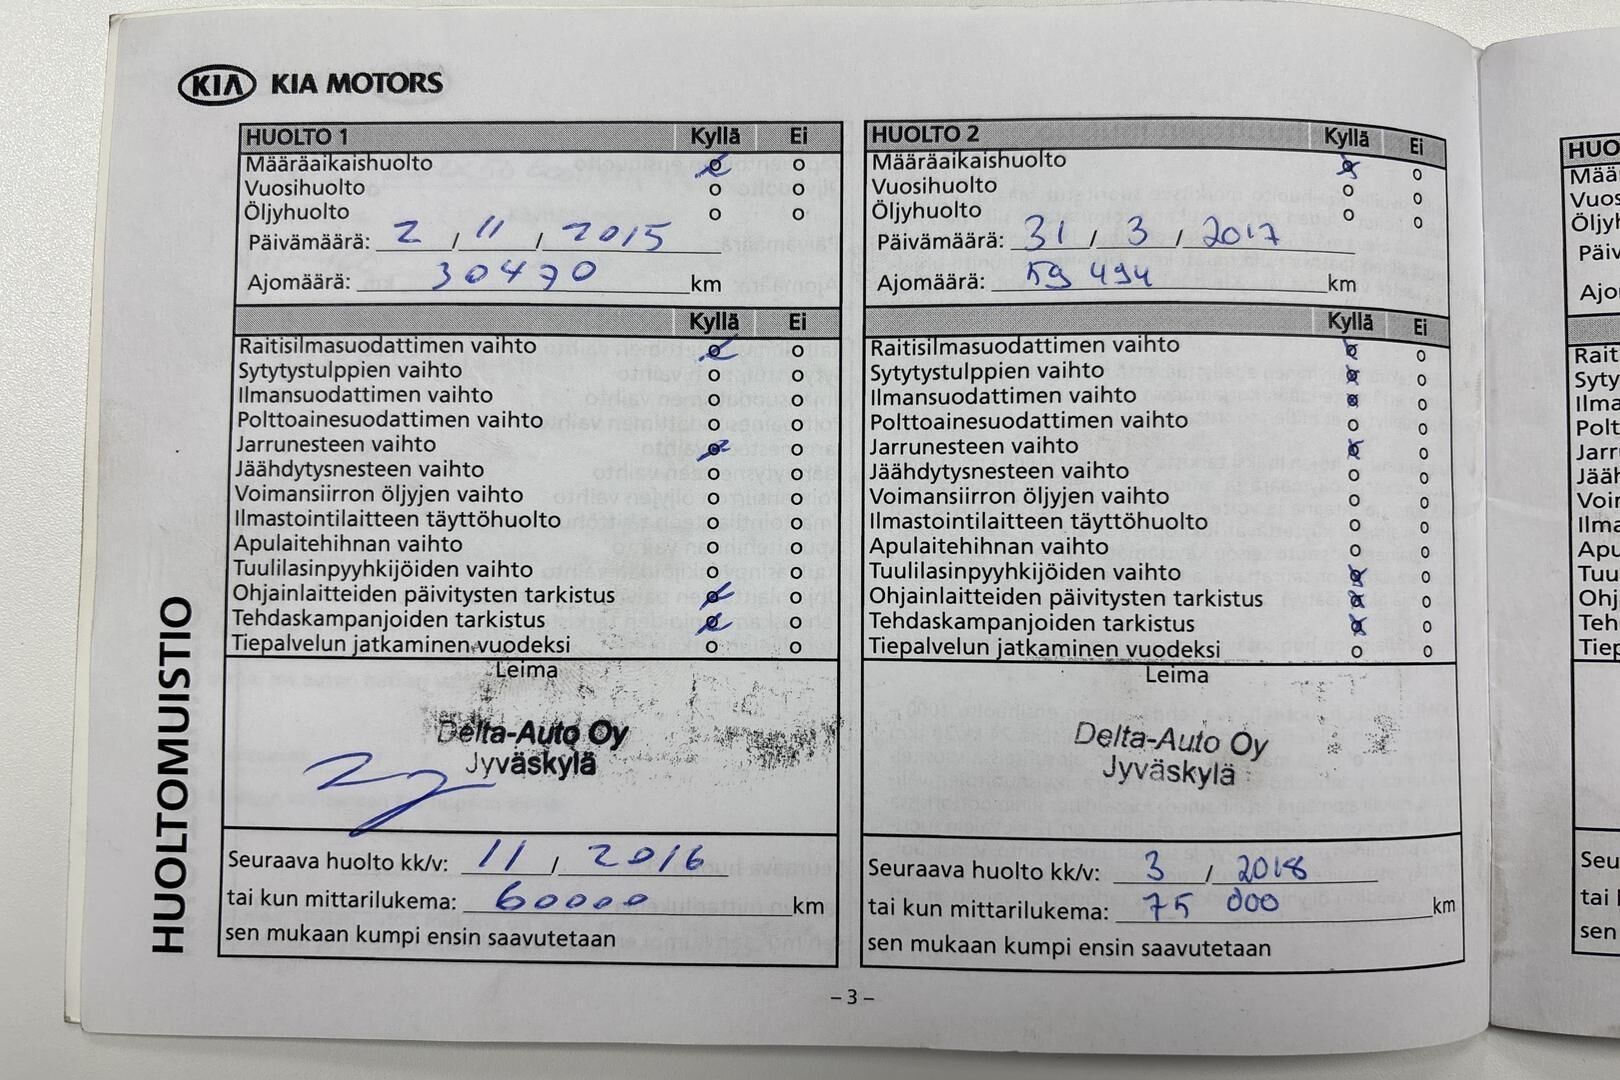 KIA KIA MOTORS
HUOLTOMUISTIO
HUOLTO 1 Kyllä Ei
Määräaikaishuolto o o
Vuosihuolto o o
Öljyhuolto o o
Päivämäärä: 2 / 11 / 2015
Ajomäärä: 30470 km
Kyllä Ei
Raitisilmasuodattimen vaihto o o
Sytytystulppien vaihto o o
Ilmansuodattimen vaihto o o
Polttoainesuodattimen vaihto o o
Jarrunesteen vaihto o o
Jäähdytysnesteen vaihto o o
Voimansiirron öljyjen vaihto o o
Ilmastointilaitteen täyttöhuolto o o
Apulaitehihnan vaihto o o
Tuulilasinpyyhkijöiden vaihto o o
Ohjainlaitteiden päivitysten tarkistus o o
Tehdaskampanjoiden tarkistus o o
Tiepalvelun jatkaminen vuodeksi o o
Leima
Delta-Auto Oy
Jyväskylä
Seuraava huolto kk/v: 11 / 2016
tai kun mittarilukema: 60000 km
sen mukaan kumpi ensin saavutetaan
HUOLTO 2 Kyllä Ei
Määräaikaishuolto o o
Vuosihuolto o o
Öljyhuolto o o
Päivämäärä: 31 / 3 / 2017
Ajomäärä: 59 494 km
Kyllä Ei
Raitisilmasuodattimen vaihto o o
Sytytystulppien vaihto o o
Ilmansuodattimen vaihto o o
Polttoainesuodattimen vaihto o o
Jarrunesteen vaihto o o
Jäähdytysnesteen vaihto o o
Voimansiirron öljyjen vaihto o o
Ilmastointilaitteen täyttöhuolto o o
Apulaitehihnan vaihto o o
Tuulilasinpyyhkijöiden vaihto o o
Ohjainlaitteiden päivitysten tarkistus o o
Tehdaskampanjoiden tarkistus o o
Tiepalvelun jatkaminen vuodeksi o o
Leima
Delta-Auto Oy
Jyväskylä
Seuraava huolto kk/v: 3 / 2018
tai kun mittarilukema: 75 000 km
sen mukaan kumpi ensin saavutetaan
– 3 –